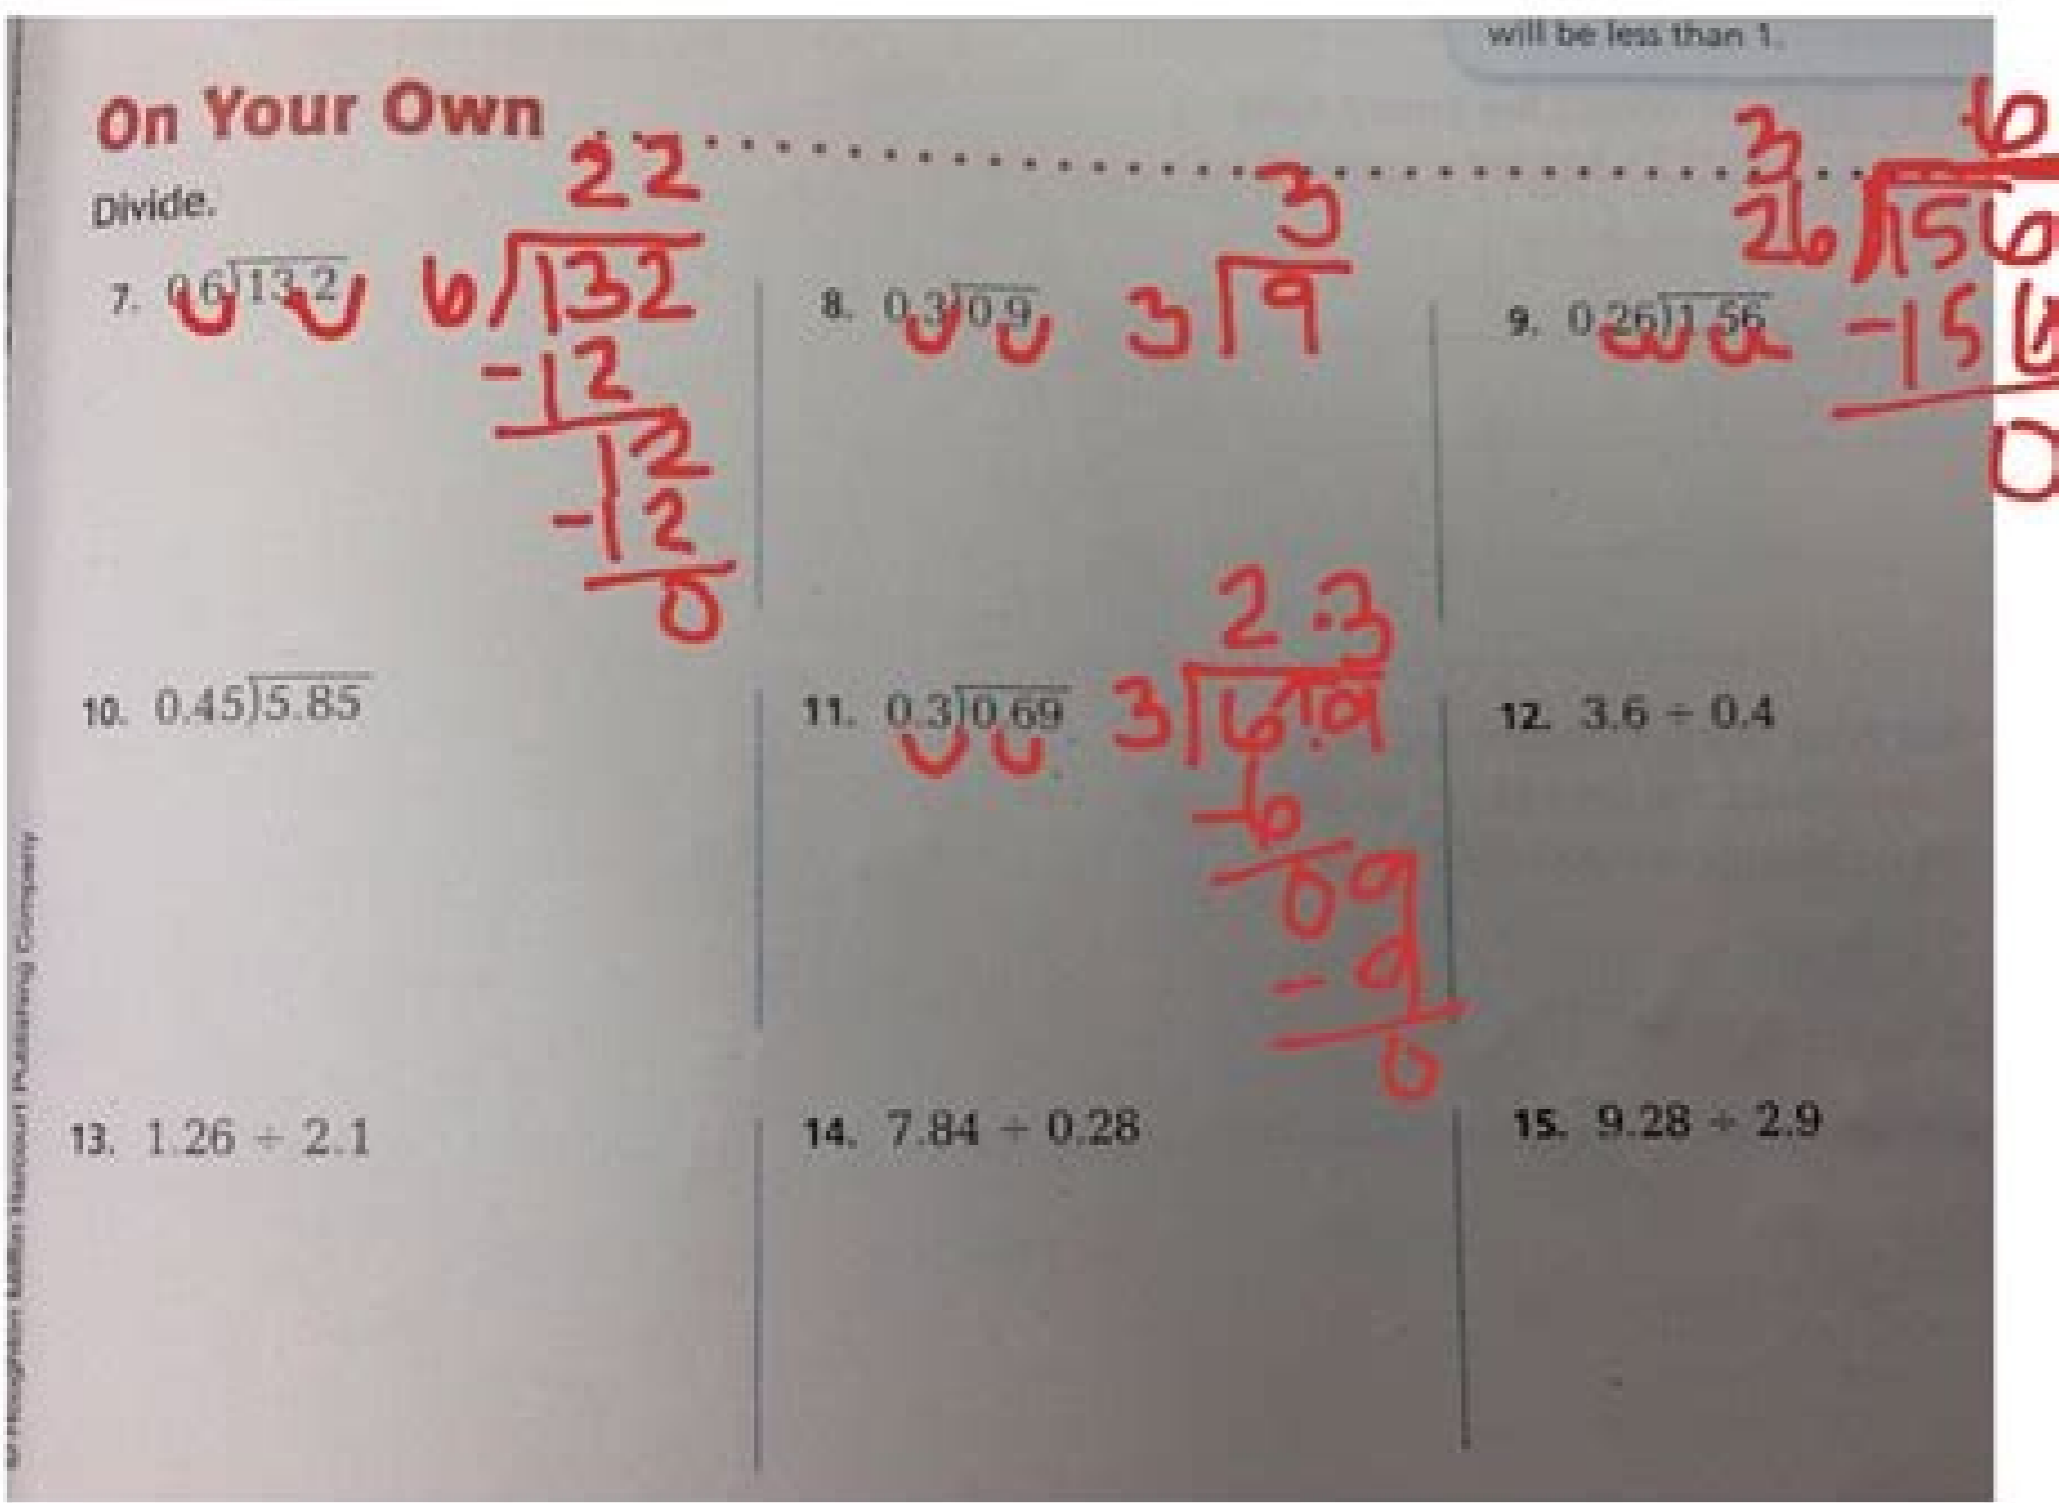 will be less than 1.
On Your Own
Divide.
7. 0.6)13.2
22
6)132
-12
12
-12
0
8. 0.3)0.9
3
3)9
9. 0.26)1.56
3
6
26)156
-156
0
10. 0.45)5.85
11. 0.3)0.69
2.3
3)6.9
-6
09
-9
0
12. 3.6 ÷ 0.4
13. 1.26 ÷ 2.1
14. 7.84 ÷ 0.28
15. 9.28 ÷ 2.9
© Houghton Mifflin Harcourt Publishing Company